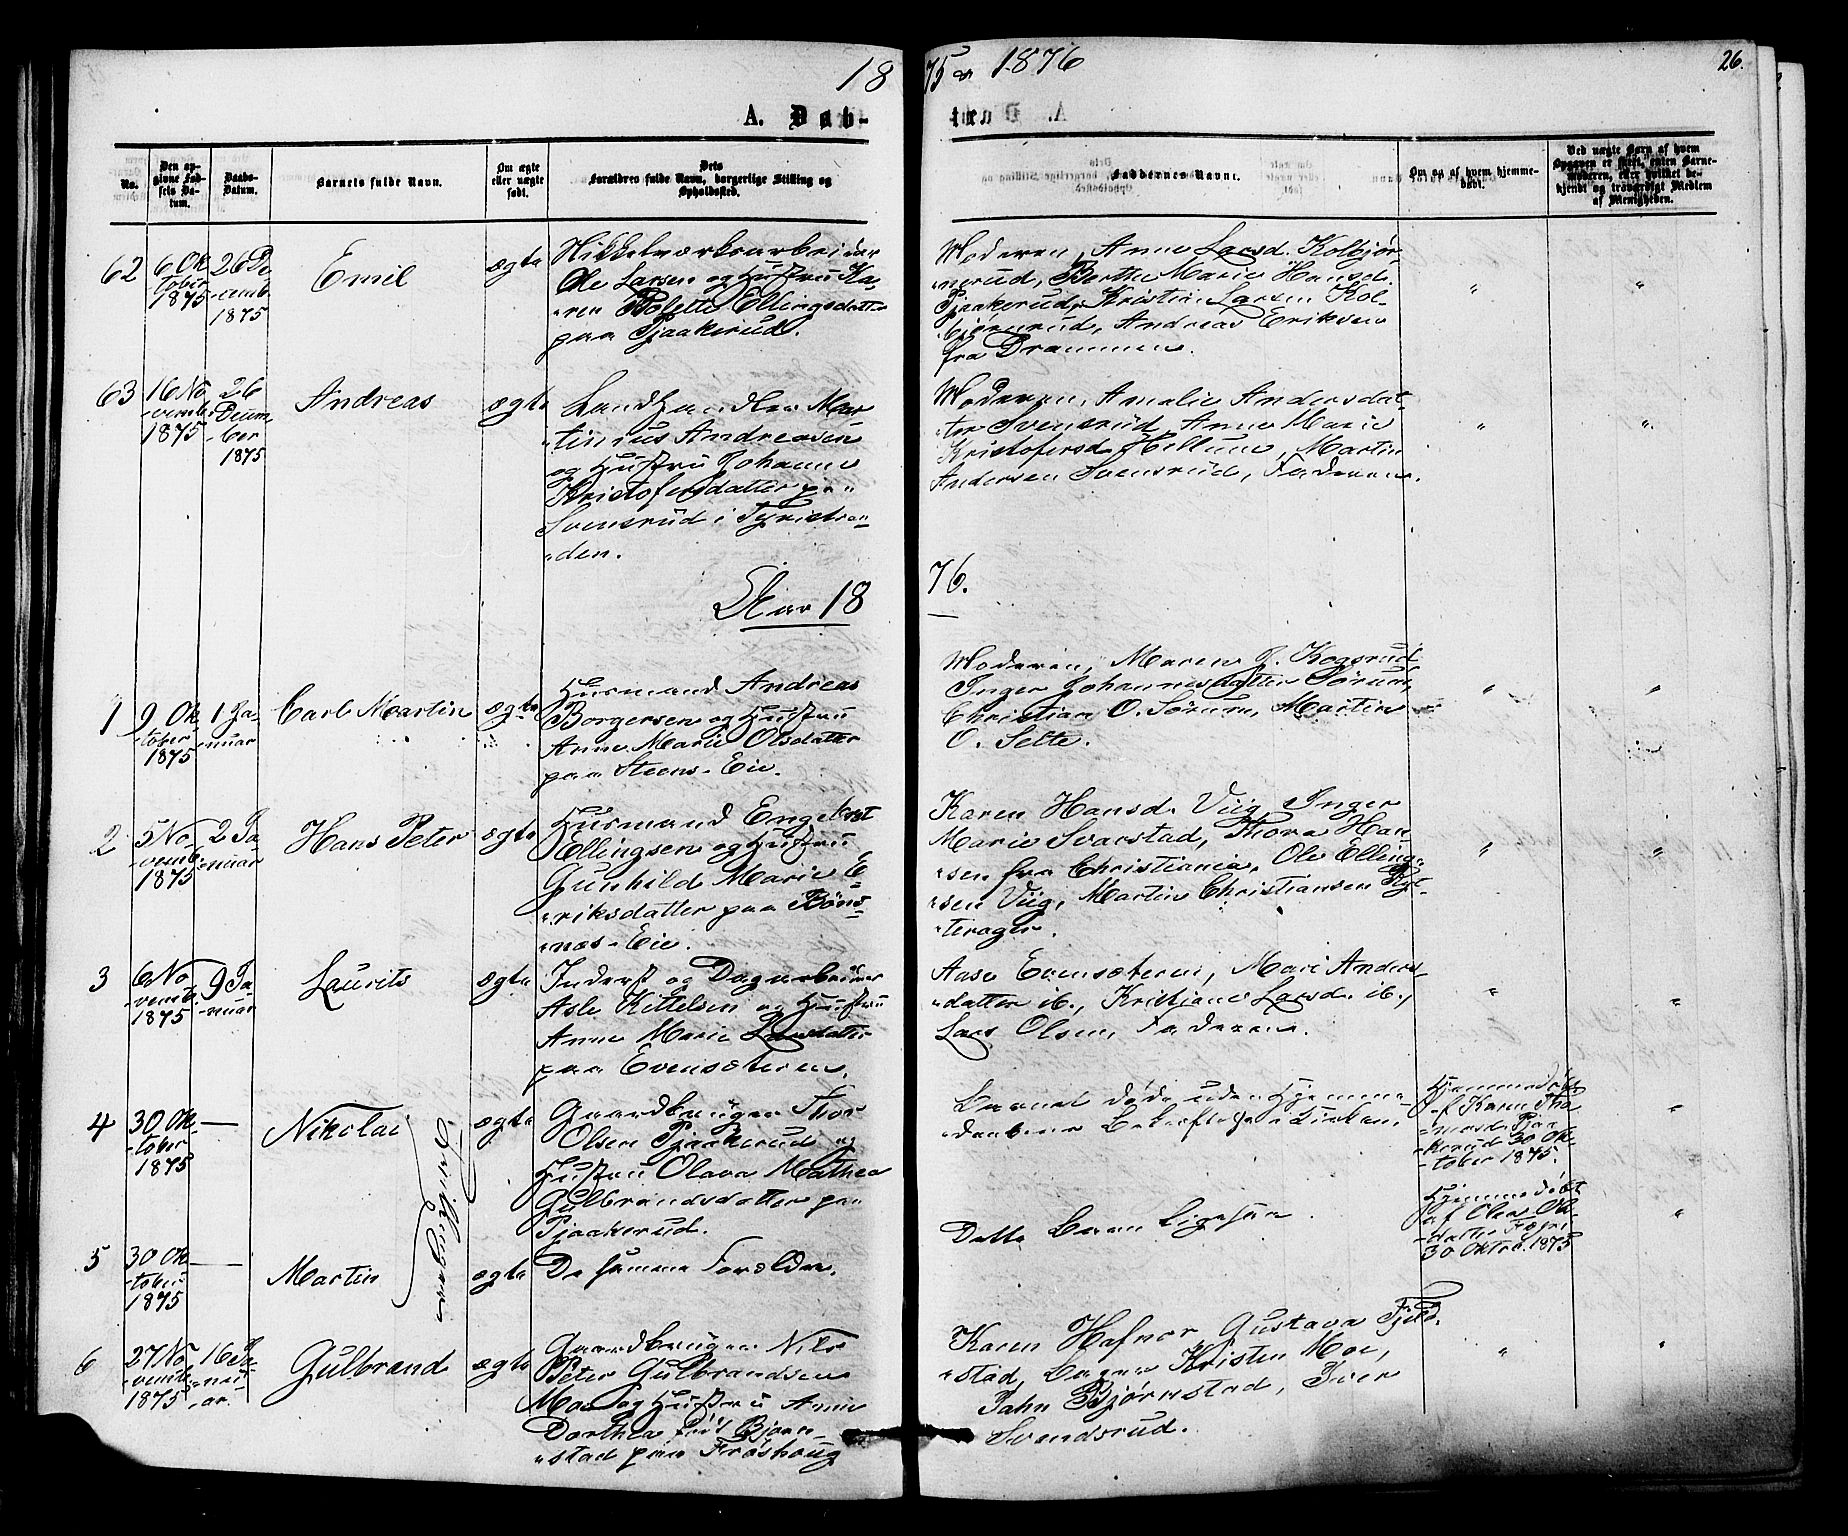 1875 & 1876
26.
A. Døbte
No.
Den opgivne Fødsels Datum.
Daabs-Datum.
Barnets fulde Navn.
Om ægte eller uægte født.
Dets Forældres fulde Navn, borgerlige Stilling og Opholdssted.
Faddernes Navne.
Om og af hvem hjemmedøbt.
62
6 Ok-
-tober
1875
26 De-
-cemb.
1875
Emil
ægte
Nikkelværksarbeider
Ole Larsen og Hustru Ka-
-ren Ellingsdatter
paa Pjaakerud.
Moderen, Anne Larsd. Kolbjør-
-nerud, Berthe Marie Hansd.
Pjaakerud, Kristian Larsen Kol-
-bjørnrud, Andreas Eriksen
fra Drammen.
"
"
63
16 No-
-vemb.
1875
26
Decem-
-ber
1875
Andreas
ægte
Landhandler Mar-
-tinius Andreasen
og Hustru Johanne
Kristofersdatter paa
Svensrud i Tyristran-
-den.
Moderen, Amalie Andersdat-
-ter Svensrud, Anne Marie
Kristofersd. Hillum, Martin
Andersen Svensrud, Faderen.
"
"
Aar 1876.
1
9 Ok-
-tober
1875
1 Ja-
-nuar
Carl Martin
ægte
Husmand Andreas
Borgersen og Hustru
Anne Marie Olsdatter
paa Steens-Eie.
Moderen, Maren J. Kogsrud,
Inger Johannesdatter Sørum,
Christian O. Sørum, Martin
O. Selte.
"
"
2
5 No-
-vemb.
1875
2 Ja-
-nuar
Hans Peter
ægte
Husmand Engebret
Ellingsen og Hustru
Gunhild Marie E-
-riksdatter paa Bøns-
-næs-Eie.
Karen Hansd. Viig, Inger
Marie Svarstad, Thora Han-
-sen fra Christiania, Ole Elling-
-sen Viig, Martin Christiansen Ryt-
-terager.
"
"
3
6 No-
-vemb.
1875
9 Ja-
-nuar
Laurits
ægte
Inderst og Dagarbeider
Asle Kittelsen og Hustru
Anne Marie Larsdatter
paa Evensæteren.
Aase Evensæteren, Mari Anders-
-datter ib., Kristiane Larsd. ib.,
Lars Olsen, Faderen.
"
"
4
30 Ok-
-tober
1875
—
Nikolai
Tvillinger
ægte
Gaardbruger Thor
Olsen Pjaakerud og
Hustru Olava Mathea
Gulbrandsdatter paa
Pjaakerud.
Barnet døde uden Hjemme-
daabens Bekræftelse i Kirken.
Hjemmedøbt
af Karen Tho-
-masd. Pjaa-
-kerud 30 Ok-
-tober 1875.
"
5
30 Ok-
-tober
1875
—
Martin
ægte
De samme Forældre.
Dette Barn ligesaa.
Hjemmedøbt
30 Oktob. 1875
"
6
27 No-
-vemb.
1875
16 Ja-
-nu-
-ar.
Gulbrand
ægte
Gaardbruger Nils
Peter Gulbrandsen
Moe og Hustru Anne
Dorthea født Bjørn-
-stad paa Frøshoug
Karen Hafnor, Gustava Fjeld-
-stad, Kristen Moe,
Jahn Bjørnstad, Iver
Svendsrud.
"
"